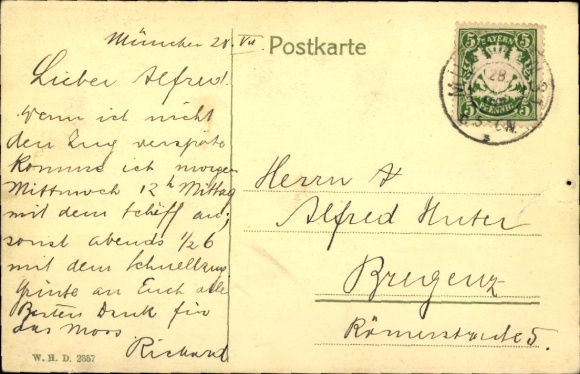 München 28. VII.
Lieber Alfred.
Wenn ich nicht
den Zug verspäte
komme ich morgen
Mittwoch 12 h Mittag
mit dem Schiff an;
sonst abends 1/2 6
mit dem Schnellzug
an Euch alle
Besten Dank für
das Moos
Richard
W. H. D. 2657
Postkarte
5 BAYERN 5
5 PFENNIG 5
28
Herrn
Alfred Huter
Bregenz
Römerstraße 5.